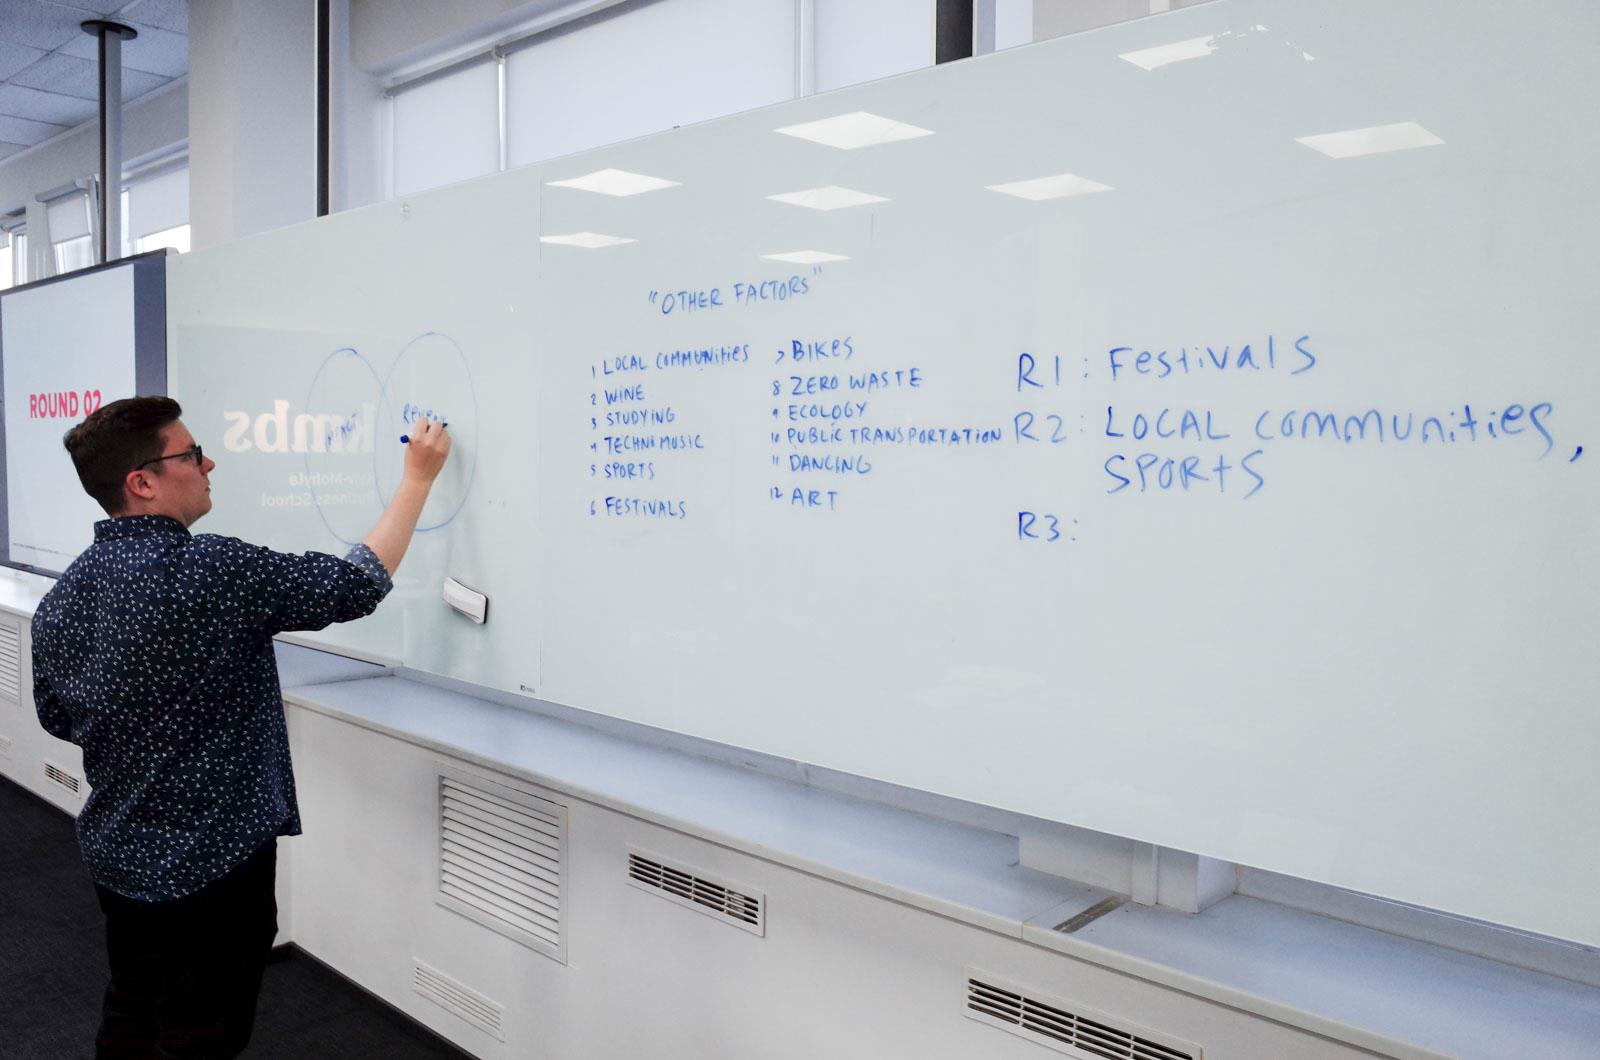 ROUND 02
kmbs
Kyiv-Mohyla
Business School
"OTHER FACTORS"
1 LOCAL COMMUNITIES
2 WINE
3 STUDYING
4 TECHNO MUSIC
5 SPORTS
6 FESTIVALS
7 BIKES
8 ZERO WASTE
9 ECOLOGY
10 PUBLIC TRANSPORTATION
11 DANCING
12 ART
R1: Festivals
R2: LOCAL communities,
SPORTS
R3: